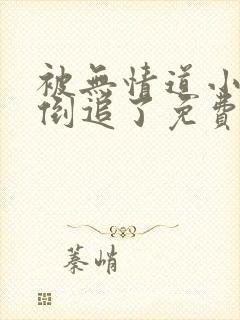 被無情道小
倒追了免費
蓁峭